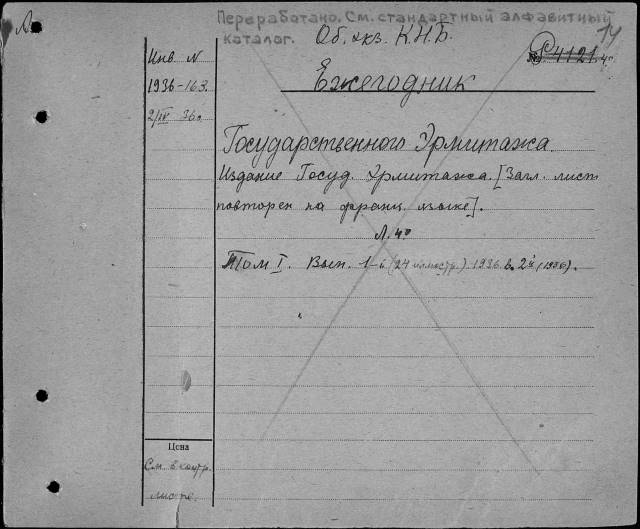 Переработано. См. стандартный алфавитный
каталог.
Об. экз. К.Н.Б.
14
№ 4121. 4°
Инв N
1936-163.
2/IV 36 г.
Ежегодник
Государственного Эрмитажа.
Издание Госуд. Эрмитажа. [Загл. лист
повторен на франц. языке].
Л. 4°
Том I. Вып. 1-й (24 иллюстр.) 1936. в. 2й (1936).
Цена
См. в контр.
листе.